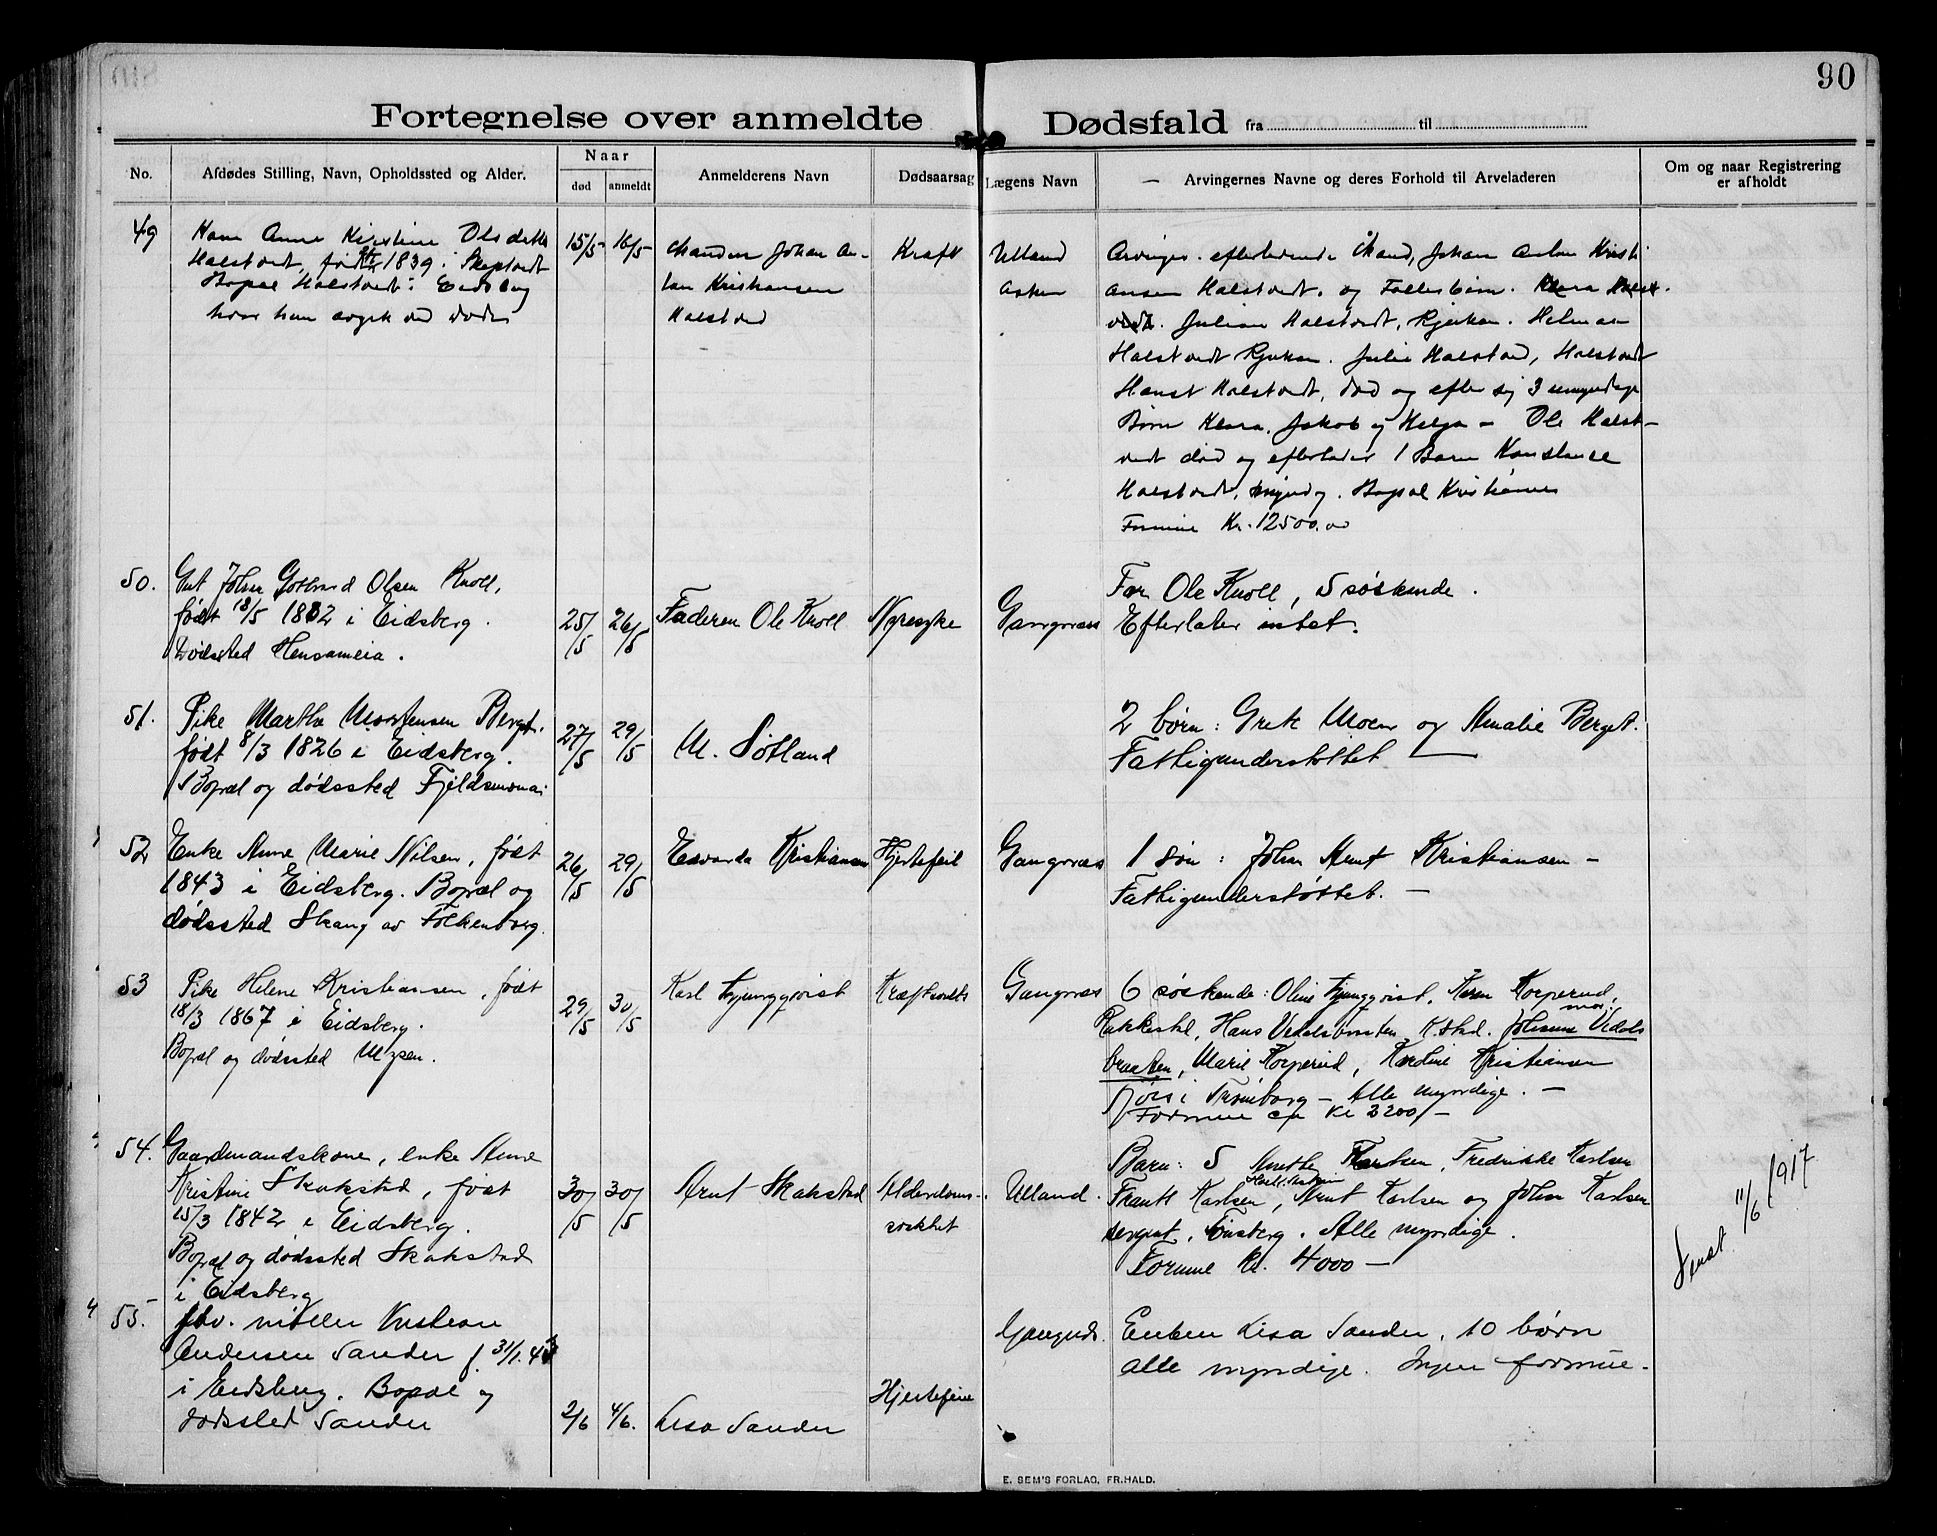 90
Fortegnelse over anmeldte Dødsfald fra til
No.
Afdødes Stilling, Navn, Opholdssted og Alder.
Naar
død
anmeldt
Anmelderens Navn
Dødsaarsag
Lægens Navn
— Arvingernes Navne og deres Forhold til Arveladeren
Om og naar Registrering
er afholdt
49
Kone Anne Kirstine Olsdatter
født 1839 i
Bopæl i Eidsberg
hvor hun avgik ved døden
15/5
16/5
Manden Johan An-
ton Kristiansen
Kræft
Ulland
Askim
Arvinger. efterlevende Mand, Johan Anton Kristi
ansen og Fællesbørn.
Julian Rjukan.
Rjukan. Julie
død og efter sig 3 umyndige
Børn Klara. Jakob og Helga – Ole
død og efterlader 1 Barn Konstance
myndig. Bopæl Kristiania
Formue Kr. 12500.00
50.
Gut Johan Olsen Knoll,
født 18/5 i Eidsberg.
Dødssted
25/5
26/5
Faderen Ole Knoll
Nyresyke
Gangnæs
Far Ole Knoll, 5 søskende.
Efterlater intet.
51.
Pike Marthe Mortensen Berget.
født 8/3 1826 i Eidsberg.
Bopæl og dødssted
27/5
29/5
M. Søtland
2 børn: Grete Moen og Amalie Berget.
Fattigunderstøttet —
52
Enke Anne Marie Nilsen, født
1843 i Eidsberg. Bopæl og
dødssted Skaug av Folkenborg.
26/5
29/5
Edvarda Kristiansen
Hjertefeil
Gangnæs
1 søn: Johan Arnt Kristiansen –
Fattigunderstøttet. –
53
Pike Helene Kristiansen, født
18/3 1867 i Eidsberg.
Bopæl og dødssted
29/5
30/5
Karl Ljungqvist
Kræftsvulst
Gangnæs
6 søskende: Oline Ljungqvist, Karen Korperud,
Rakkestad, Hans
Marie Korperud, Karoline Kristiansen
i Trømborg – Alle myndige. –
Formue ca Kr 3200 –
54.
Gaardmandskone, enke Anne
Kristine Skakstad, født
15/3 1842 i Eidsberg.
Bopæl og dødssted Skakstad
i Eidsberg
30/5
30/5
Arnt Skakstad
Alderdoms-
svakhet
Ulland.
Barn: 5 Anethe Karlsen, Fredrikke Karlsen
Frantz Karlsen, Arnt Karlsen og Johan Karlsen
sergent, Tønsberg. Alle myndige.
Formue Kr. 4000 –
Sendt 11/6 1917
55.
fhv. møller Kristian
Andersen Sander f. 31/1. 43
i Eidsberg. Bopæl og
dødssted Sander
2/6
4/6.
Lisa Sander
Hjertefeil
Gangnæs.
Enken Lisa Sander. 10 børn
alle myndige. Ingen formue.
E. SEM'S FORLAG, FR.HALD.